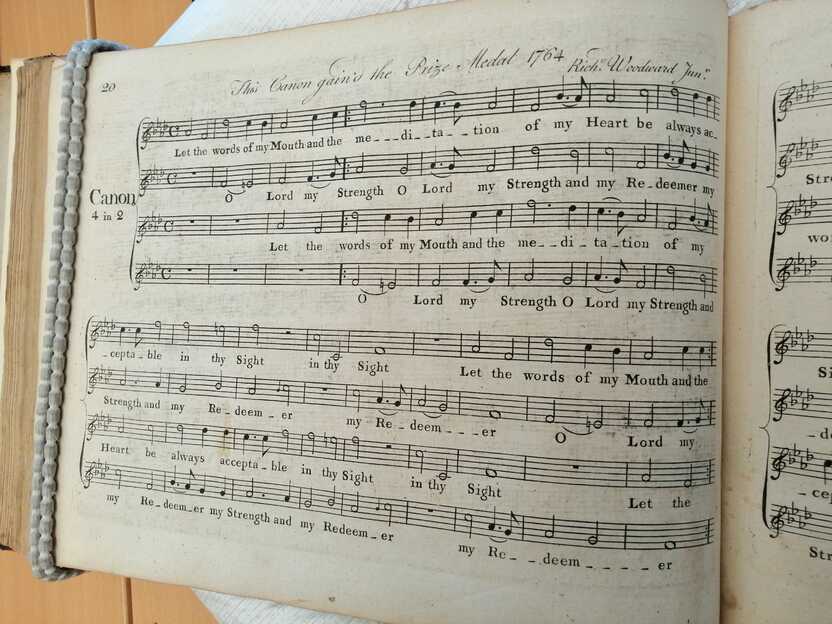 20
This Canon gain'd the Prize Medal 1764
Richd. Woodward Junr.
Let the words of my Mouth and the me---di--ta--tion of my Heart be always ac_
Canon
4 in 2
O Lord my Strength O Lord my Strength and my Re_deemer my
Let the words of my Mouth and the me--di-ta-tion of my
O Lord my Strength O Lord my Strength and
_cepta_ble in thy Sight in thy Sight Let the words of my Mouth and the
Strength and my Re_deem_er my Re_deem___er O Lord my
Heart be always accepta_ble in thy Sight in thy Sight Let the
my Re_deem_er my Strength and my Redeem_er my Re__deem_____er
Str
wo
Si
_de
_cep
Str